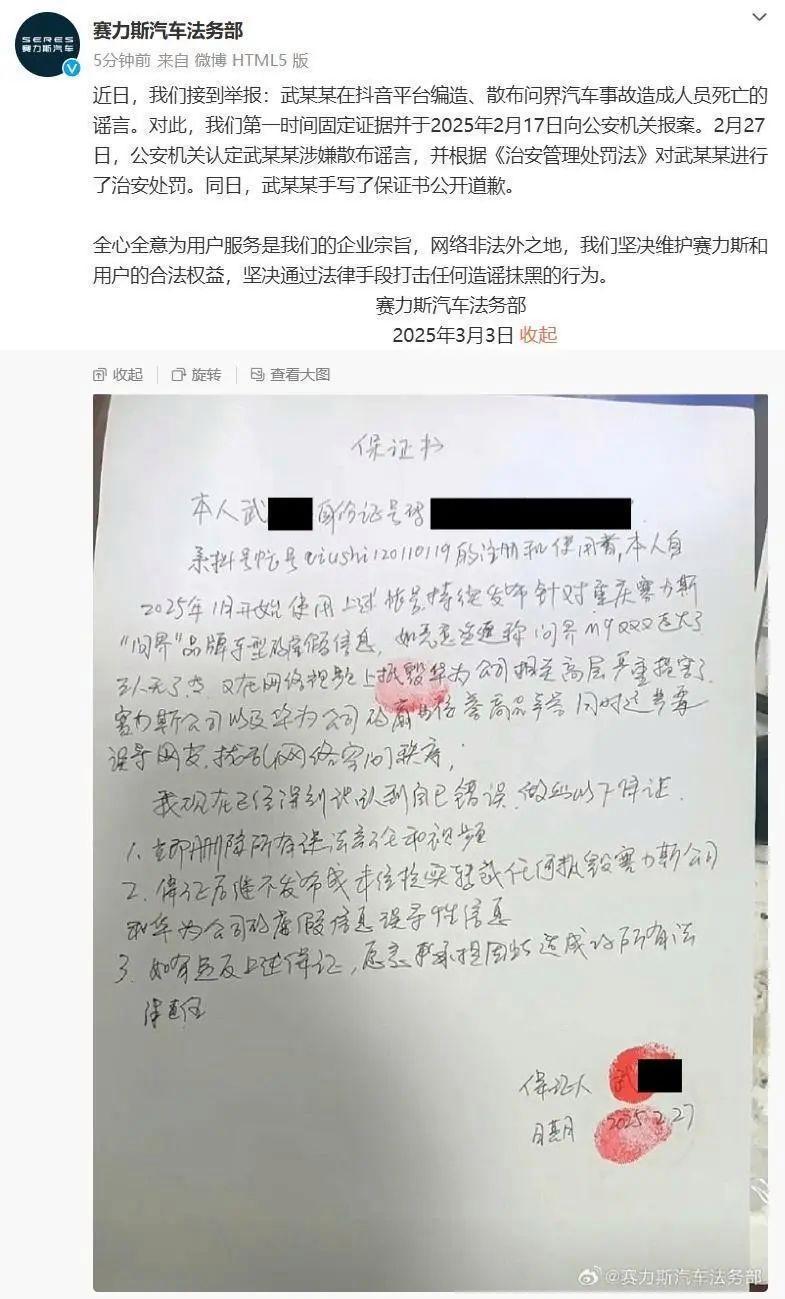 SERES
赛力斯汽车
赛力斯汽车法务部
5分钟前 来自 微博 HTML5 版
近日，我们接到举报：武某某在抖音平台编造、散布问界汽车事故造成人员死亡的
谣言。对此，我们第一时间固定证据并于2025年2月17日向公安机关报案。2月27
日，公安机关认定武某某涉嫌散布谣言，并根据《治安管理处罚法》对武某某进行
了治安处罚。同日，武某某手写了保证书公开道歉。
全心全意为用户服务是我们的企业宗旨，网络非法外之地，我们坚决维护赛力斯和
用户的合法权益，坚决通过法律手段打击任何造谣抹黑的行为。
赛力斯汽车法务部
2025年3月3日 收起
收起 旋转 查看大图
保证书
本人武 身份证号码
系抖音帐号 qiushi120110119的注册和使用者,本人自
2025年1月开始使用上述帐号,持续发布针对重庆赛力斯
"问界"品牌车型的虚假信息, 如 问界M9
又在网络视频上抵毁华为公司相关高层严重损害了
赛力斯公司以及华为公司的 商品 同时还
误导网友,扰乱网络空间秩序;
我现在已经深刻认识到自己错误,做出以下保证.
1. 立即删除所有 和视频
2. 保证后续不发布 任何抵毁赛力斯公司
和华为公司的虚假信息误导性信息
3. 如有违反上述保证,愿意承担因此造成的所有法
律责任
保证人 武
日期 2025.2.27
@赛力斯汽车法务部